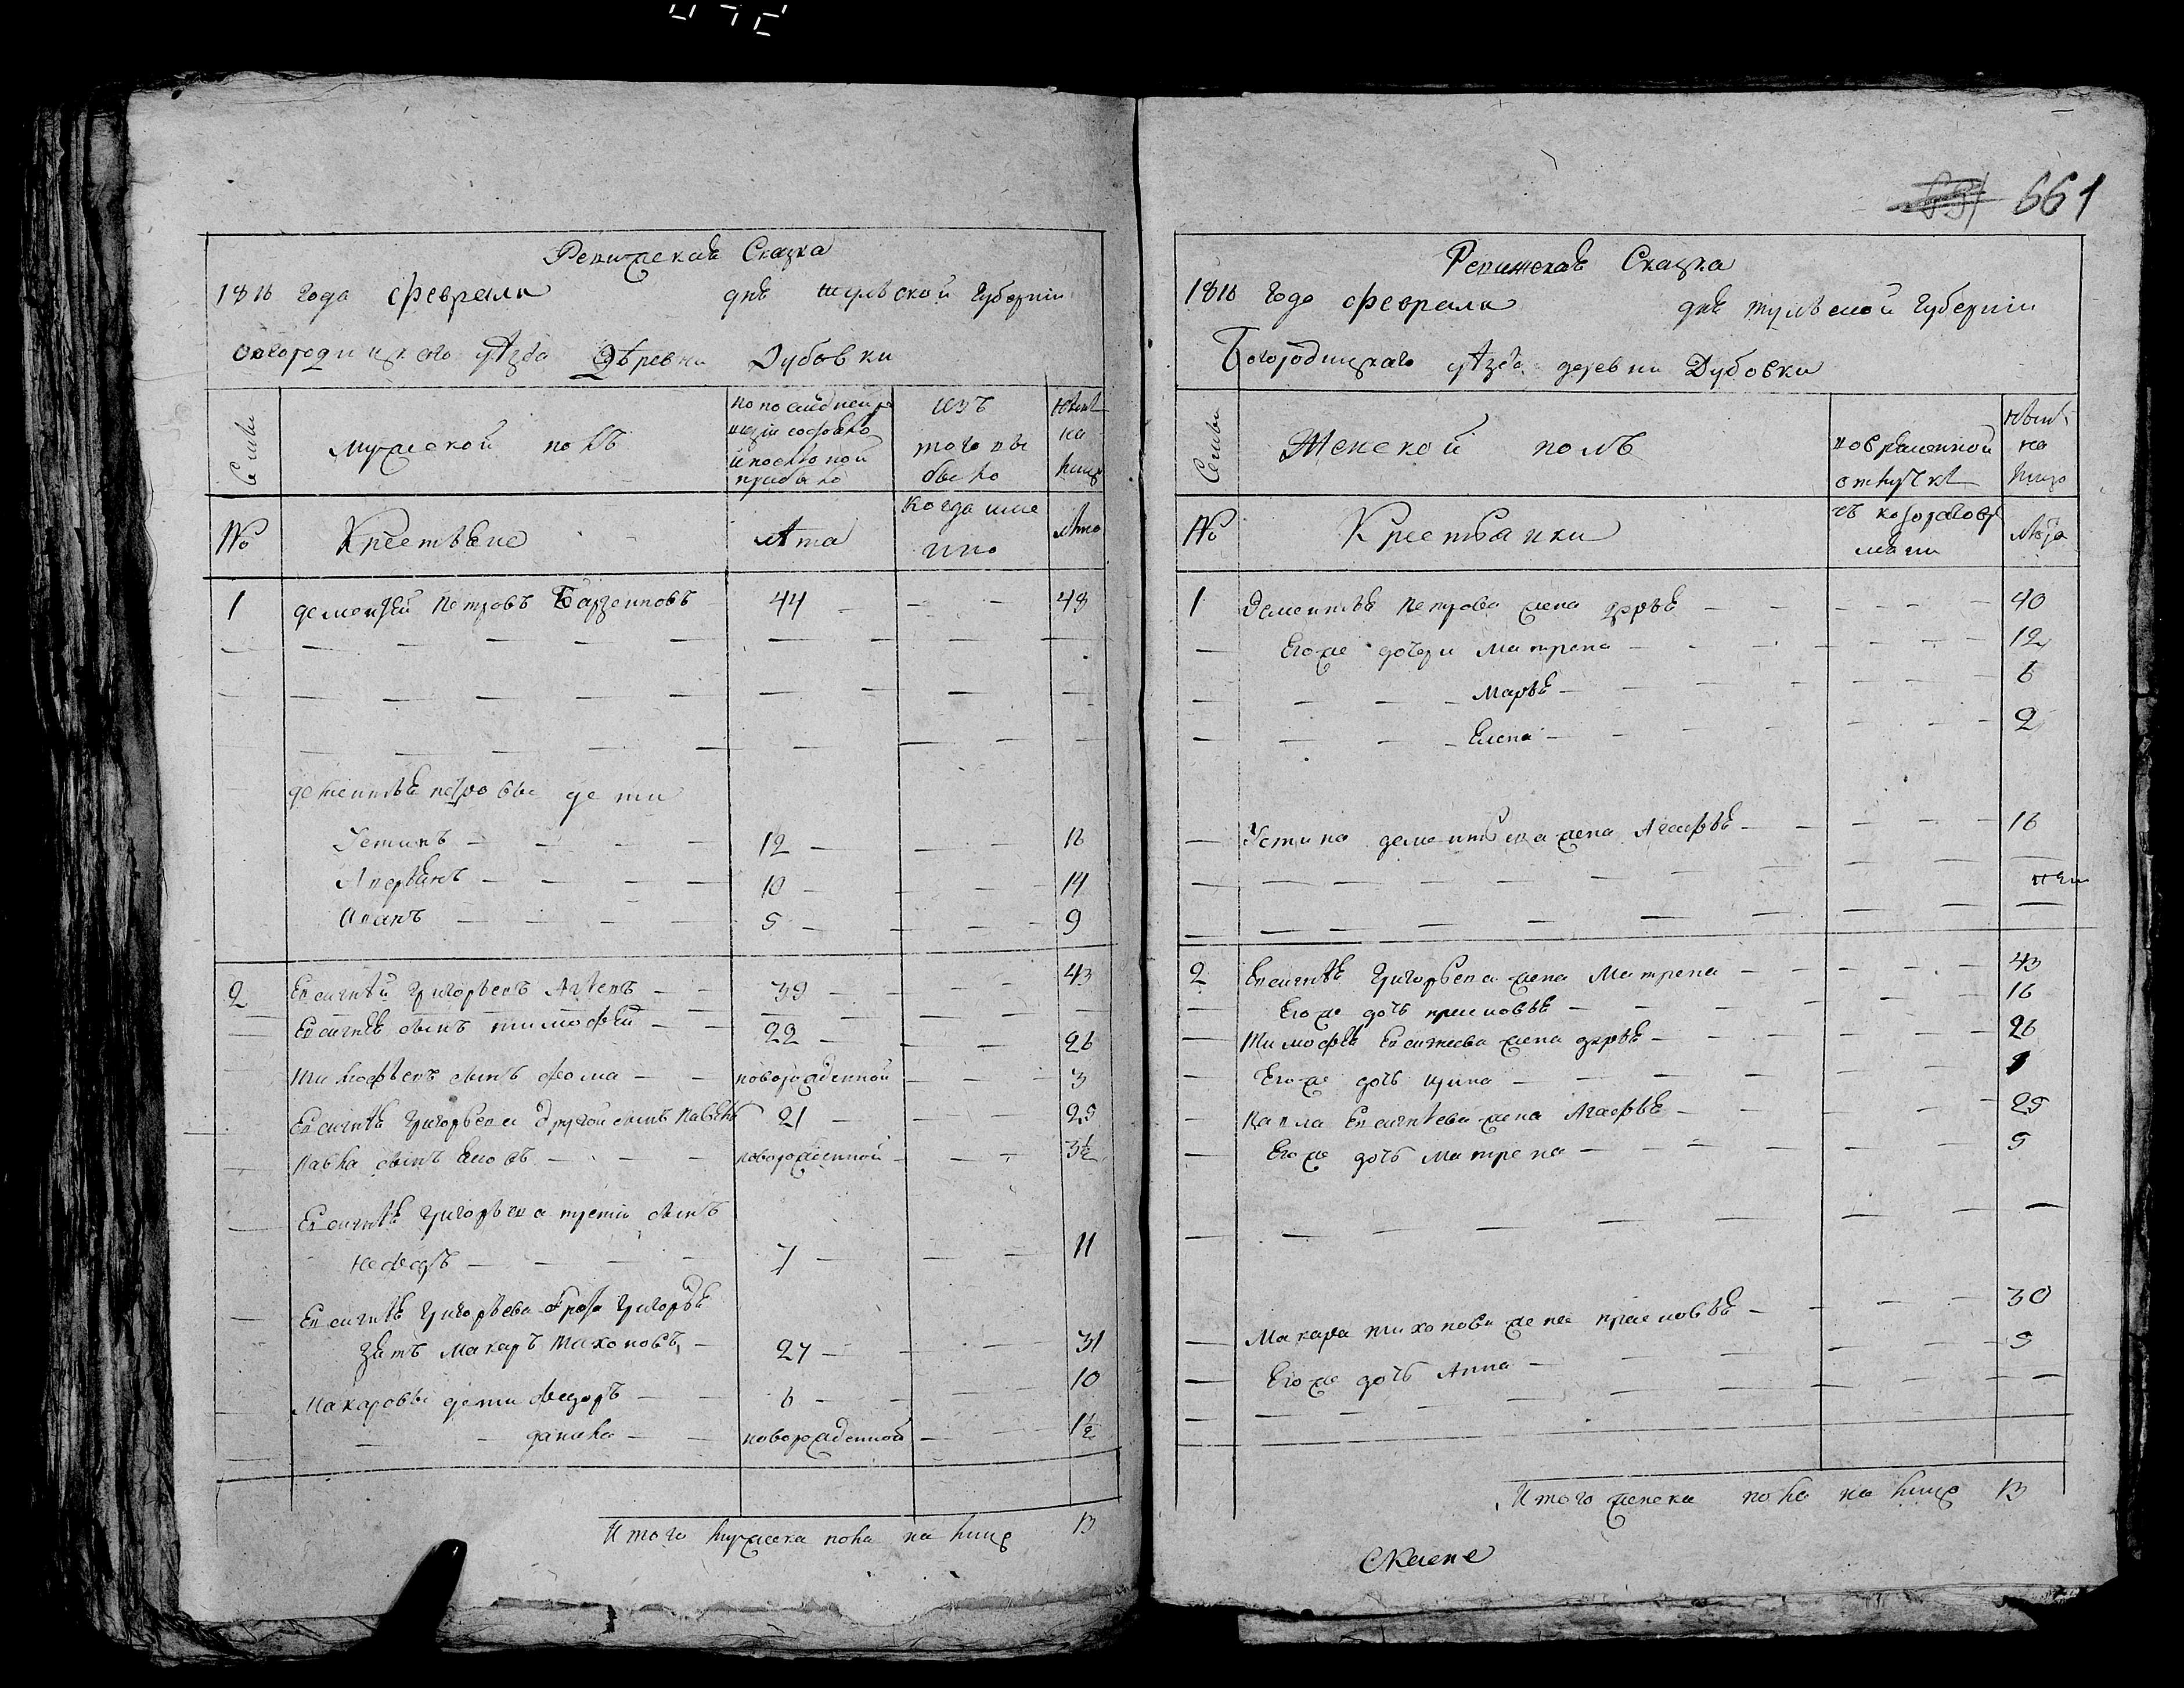 661
Ревижская Сказка
1816 года февраля дня тульской Губернии
Богородицкаго уѣзда Деревни Дубовки
Семьи
мужеской полъ
по последней ре
визіи состояло
и после оной
прибыло
изъ
того вы
было
нынѣ
на
лицо
№
Крестьяне
лѣта
когда име
нно
лѣта
1 дементей Петровъ 44 48
дементья петровы дети
Устинъ 12 16
Аверьянъ 10 14
Иванъ 5 9
2 Евсигнѣй Григорьевъ 39 43
Евсигнѣя сынъ тимофей 22 26
Тимофѣевъ сынъ фома новорожденной 3
Евсигнѣя Григорьева другой сынъ Павелъ 21 25
Павла сынъ новорожденной 3½
Евсигнѣя Григорьева третій сынъ
нефедъ 7 11
Евсигнѣя Григорьева Григорья
зять Макаръ Тихоновъ 27 31
Макаровы дети федоръ 6 10
данила новорожденной 1½
Итого мужеска пола на лицо 13
Ревижская Сказка
1816 года февраля дня тульской Губернии
Богородицкаго уѣзда деревни Дубовки
Семьи
Женской полъ
во временной
отлучкѣ
нынѣ
на
лицо
№
Крестьянки
съ котораго вре
мани
лѣта
1 Дементья Петрова жена дарья 40
Его же дочери Матрена 12
Марья 6
Елена 2
Устина дементьева жена Агафья 16
2 Евсигнѣя Григорьева жена Матрена 43
Его же дочь прасковья 16
Тимофѣя Евсигнеева жена дарья 26
Его же дочь 1
Павла Евсигнѣева жена Агафья 25
Его же дочь Матрена 5
Макара тихонова жена прасковья 30
Его же дочь Анна 5
Итого женска пола на лицо 13